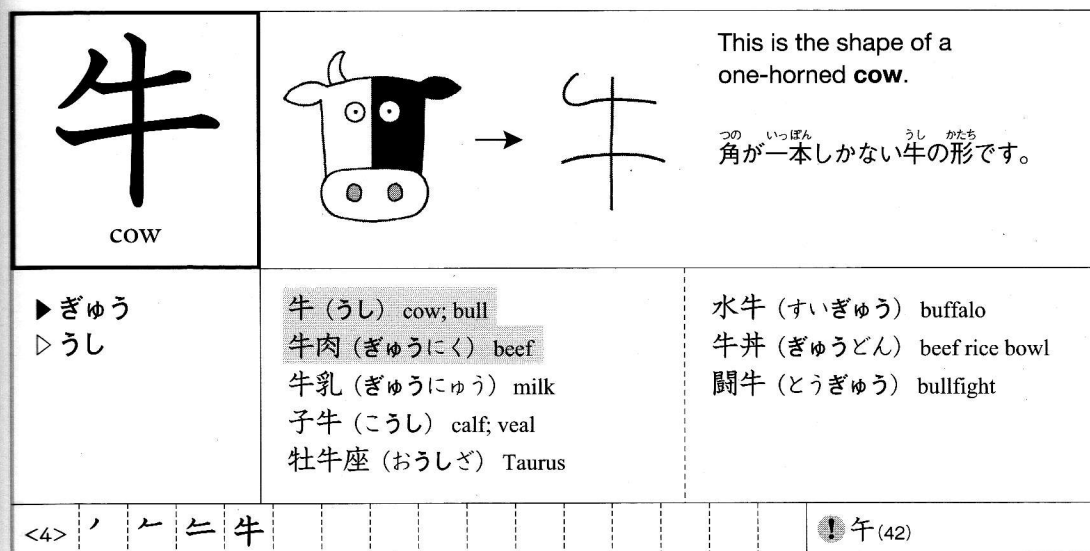 牛
cow
This is the shape of a
one-horned cow.
つの いっぽん うし かたち
角が一本しかない牛の形です。
▶ ぎゅう
▷ うし
牛（うし） cow; bull
牛肉（ぎゅうにく） beef
牛乳（ぎゅうにゅう） milk
子牛（こうし） calf; veal
牡牛座（おうしざ） Taurus
水牛（すいぎゅう） buffalo
牛丼（ぎゅうどん） beef rice bowl
闘牛（とうぎゅう） bullfight
<4> 丿 𠂉 牛
! 午(42)